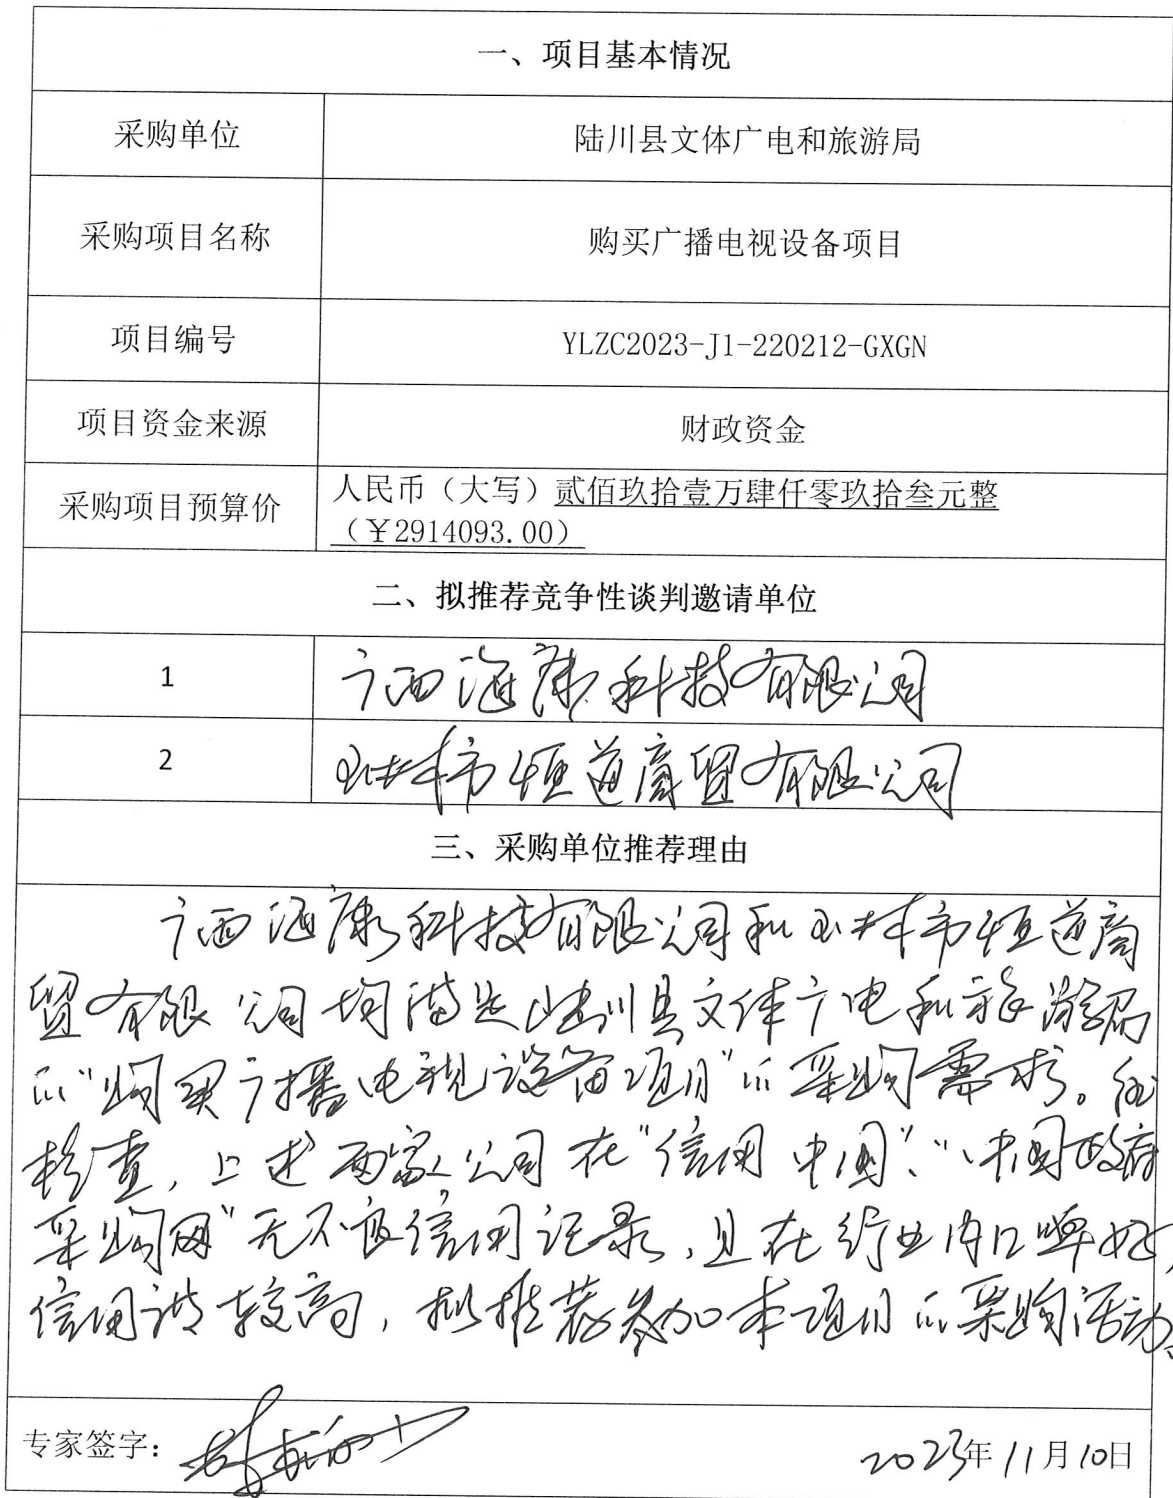 一、项目基本情况
采购单位 陆川县文体广电和旅游局
采购项目名称 购买广播电视设备项目
项目编号 YLZC2023-J1-220212-GXGN
项目资金来源 财政资金
采购项目预算价 人民币（大写）贰佰玖拾壹万肆仟零玖拾叁元整
（￥2914093.00）
二、拟推荐竞争性谈判邀请单位
1 广西海康科技有限公司
2 玉林市恒道商贸有限公司
三、采购单位推荐理由
广西海康科技有限公司和玉林市恒道商
贸有限公司均满足陆川县文体广电和旅游局
的“购买广播电视设备项目”的采购需求。经
检查，上述两家公司在“信用中国”、“中国政府
采购网”无不良信用记录，且在行业内口碑好，
信用较高，拟推荐参加本项目的采购活动。
专家签字： 2023年11月10日